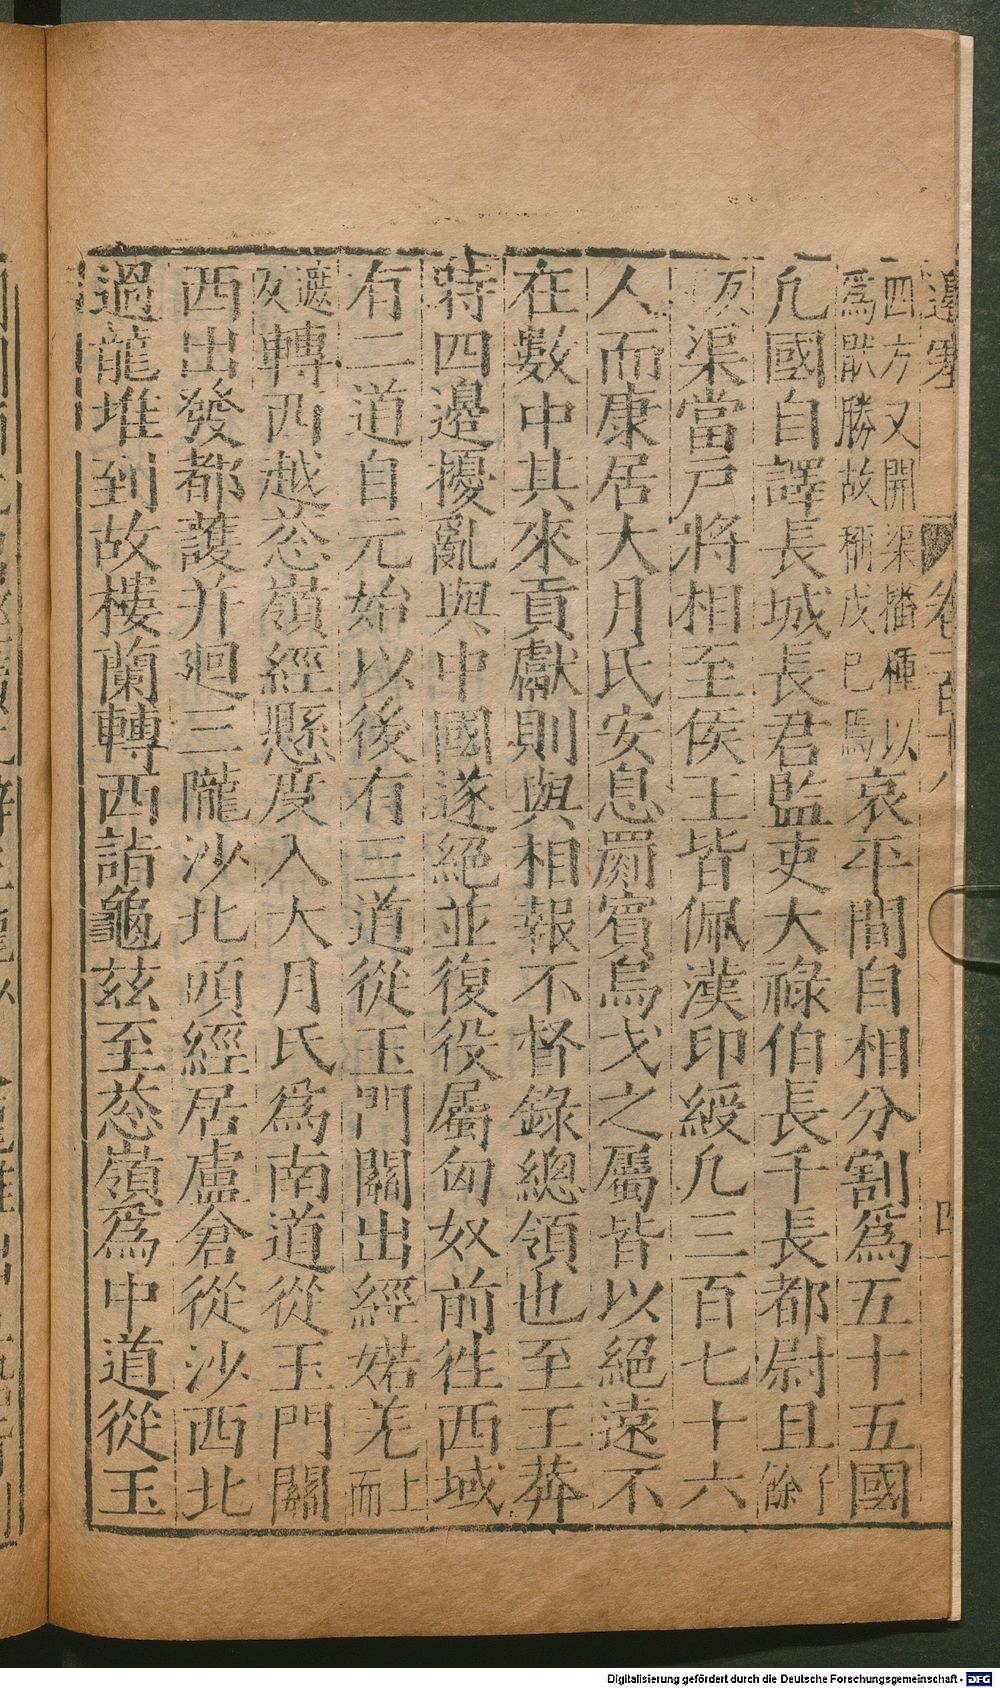 邊塞 卷一百十八 四
四方又開渠播種以
爲厭勝故稱戊巳焉哀平間自相分割爲五十五國
凡國自譯長城長君監吏大祿伯長千長都尉且子
餘
反渠當戶將相至侯王皆佩漢印綬凡三百七十六
人而康居大月氏安息罽賓烏戈之屬皆以絕遠不
在數中其來貢獻則與相報不督錄總領也至王莽
時四邊擾亂與中國遂絕並復役屬匈奴前徃西域
有二道自元始以後有三道從玉門關出經婼羌上
而
遮
反轉西越葱嶺經懸度入大月氏爲南道從玉門關
西出發都護井廻三隴沙北頭經居盧倉從沙西北
過龍堆到故樓蘭轉西詣龜茲至葱嶺爲中道從玉
Digitalisierung gefördert durch die Deutsche Forschungsgemeinschaft - DFG